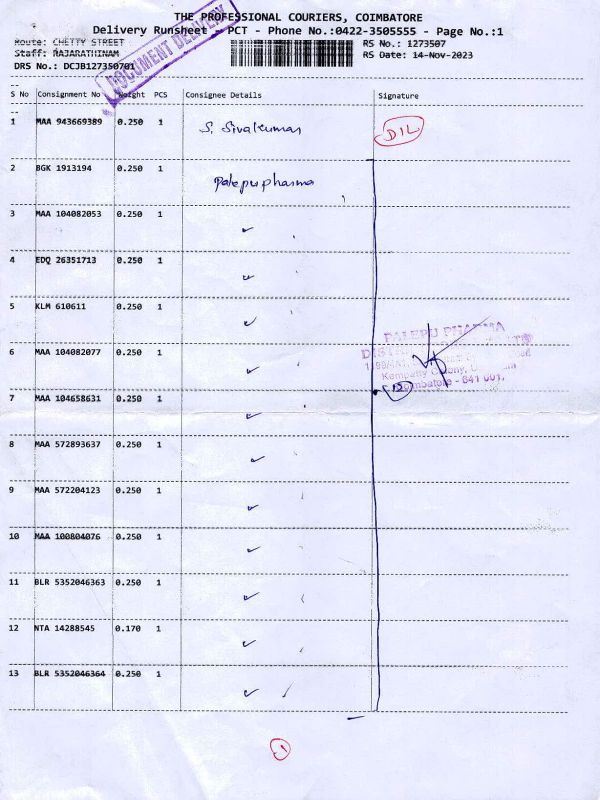 THE PROFESSIONAL COURIERS, COIMBATORE
Delivery Runsheet - PCT - Phone No.:0422-3505555 - Page No.:1
Route: CHETTY STREET
RS No.: 1273507
Staff: RAJARATHINAM
RS Date: 14-Nov-2023
DRS No.: DCJB127350701
DOCUMENT DELIVERY
S No Consignment No Weight PCS Consignee Details Signature
1 MAA 943669389 0.250 1 S. Sivakumar D1L
2 BGK 1913194 0.250 1 Palepu pharma
3 MAA 104082053 0.250 1 ✓
4 EDQ 26351713 0.250 1 ✓
5 KLM 610611 0.250 1 ✓
PALEPU PHARMA
6 MAA 104082077 0.250 1 ✓
Coimbatore - 641 001.
7 MAA 104658631 0.250 1 ✓ 12
8 MAA 572893637 0.250 1 ✓
9 MAA 572204123 0.250 1 ✓
10 MAA 100804076 0.250 1 ✓
11 BLR 5352046363 0.250 1 ✓
12 NTA 14288545 0.170 1 ✓
13 BLR 5352046364 0.250 1 ✓
1